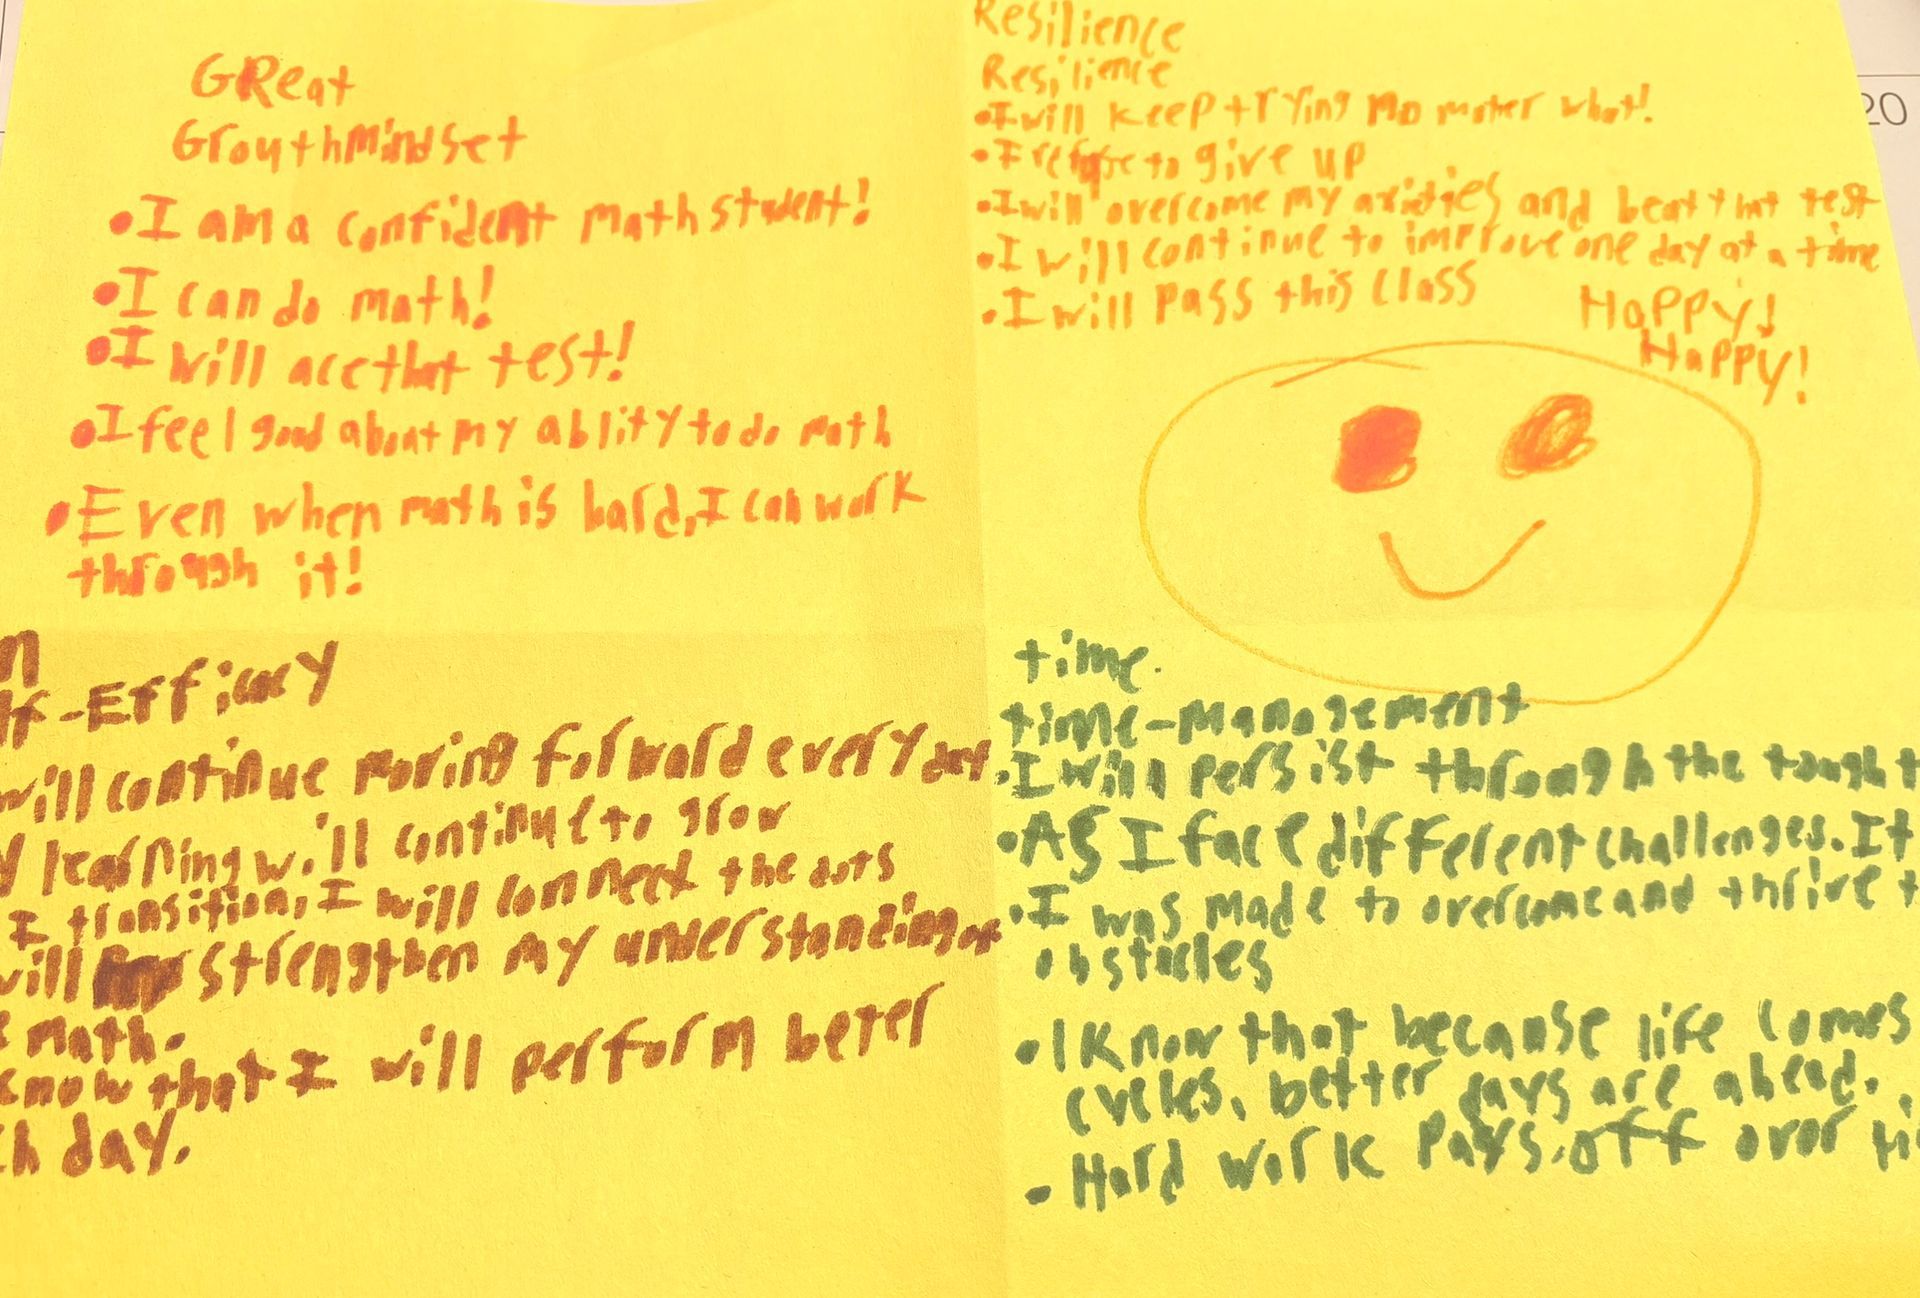 GReat
Grouthmindset
•I am a confident math student!
•I can do math!
•I will ace that test!
•I feel good about my ablity to do math
•Even when math is hard, I can work
through it!
Resilience
Resilience
•I will keep trying no mater what!
•I refuse to give up
•I will overcome my and beat that test
•I will continue to improve one day at a time
•I will pass this class
Happy!
Happy!
20
n
lf-Efficacy
will continue moving forward every day
y learning will continue to grow
I transition, I will connect the dots
will strengthen my understanding of
math.
know that I will perform beter
ch day.
time.
time-management
•I will persist through the tough t
•As I face different challenges. It
•I was made to overcome and thrive t
obstacles
•I know that because life comes
cycles, better days are ahead.
• Hard work pays off over ti